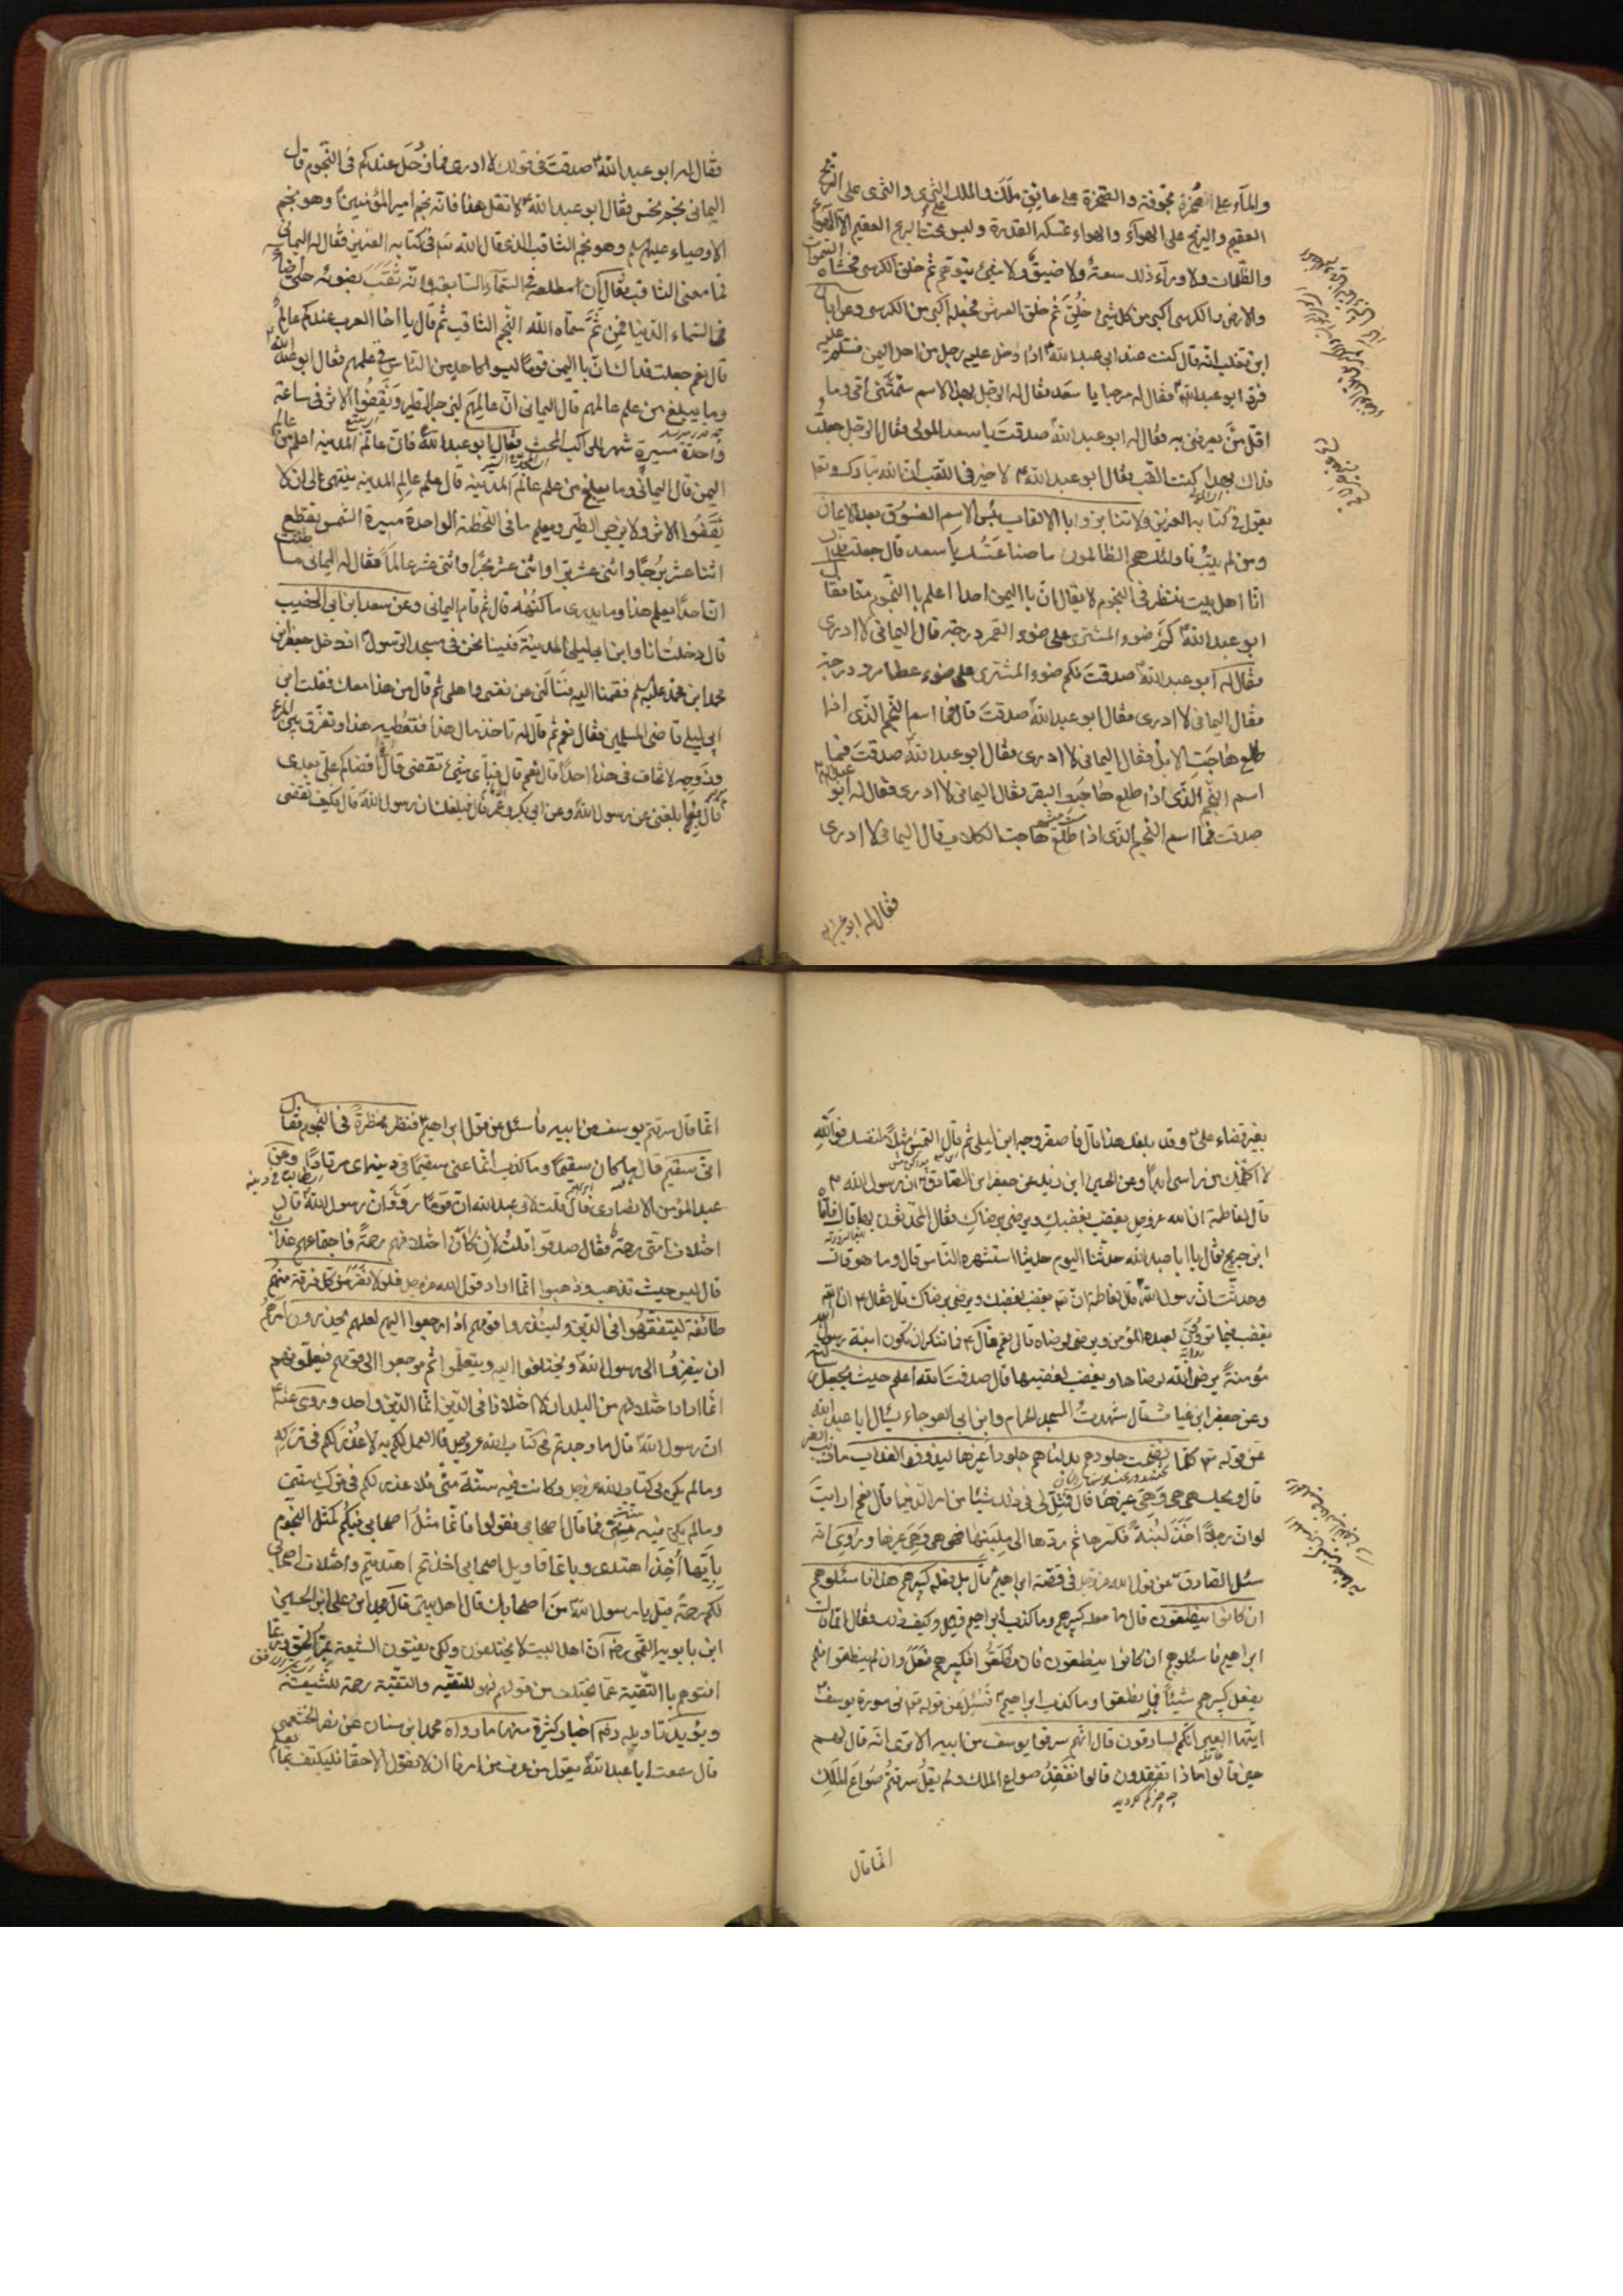 والمآء على الصخرة مجوفة والصخرة على عاتق ملك والملك على الثرى والثرى على الريح
العقيم والريح على الهوآء والهواء تمسكه القدرة وليس تحت الريح العقيم الا الهواء
والظلمات ولا ورآء ذلك سعة ولا ضيق ولا شئ يتوهم ثم خلق الكرسى فحشاه السموات
والارض والكرسى اكبر من كل شئ خلق ثم خلق العرش فجعله اكبر من الكرسى وعن ابان
ابن تغلب انه قال كنت عند ابى عبد الله اذ دخل عليه رجل من اهل اليمن فسلم عليه
فرد ابو عبد الله فقال له مرحبا يا سعد فقال له الرجل بهذا الاسم سمتنى امى وما
اقل من يعرفنى به فقال له ابو عبد الله صدقت يا سعد المولى فقال الرجل جعلت
فداك بهذا كنت القب فقال ابو عبد الله لا خير فى اللقب ان الله تبارك وتعالى
يقول فى كتابه العزيز ولا تنابزوا بالالقاب بئس الاسم الفسوق بعد الايمان
ومن لم يتب فاولئك هم الظالمون ما صناعتك يا سعد قال جعلت فداك
انا اهل بيت ننظر فى النجوم لا يقال ان باليمن احدا اعلم بالنجوم منا فقال
ابو عبد الله كم ضوء المشترى على ضوء القمر درجة قال اليمانى لا ادرى
فقال له ابو عبد الله صدقت فكم ضوء المشترى على ضوء عطارد درجة
فقال اليمانى لا ادرى فقال ابو عبد الله صدقت قال فما اسم النجم الذى اذا
طلع هاجت الابل فقال اليمانى لا ادرى فقال ابو عبد الله صدقت فما
اسم النجم الذى اذا طلع هاجت البقر فقال اليمانى لا ادرى فقال له ابو عبد الله
صدقت فما اسم النجم الذى اذا طلع هاجت الكلاب قال اليمانى لا ادرى
فقال له ابو عبد الله
فقال له ابو عبد الله صدقت فى قولك لا ادرى فما زحل عندكم فى النجوم قال
اليمانى نجم نحس فقال ابو عبد الله لا تقل هذا فانه نجم امير المؤمنين وهو نجم
الاوصياء عليهم وهو نجم الثاقب الذى قال الله فى كتابه العزيز فقال له اليمانى
فما معنى الثاقب فقال ان مطلعه فى السمآء السابعة وانه ثقب بضوئه حتى اضاء
فى السماء الدنيا فمن ثم سماه الله النجم الثاقب ثم قال يا اخا العرب عندكم عالم
قال نعم جعلت فداك ان باليمن قوما ليسوا كاحد من الناس فى علمهم فقال ابو عبد الله
وما يبلغ من علم عالمهم قال اليمانى ان عالمهم ليزجر الطير ويقفوا الاثر فى ساعة
واحدة مسيرة شهر للراكب المحث فقال ابو عبد الله فان عالم المدينة اعلم من عالم
اليمن قال اليمانى وما يبلغ من علم عالم المدينة قال علم عالم المدينة ينتهى الى ان لا
يقفوا الاثر ولا يزجر الطير ويعلم ما فى اللحظة الواحدة مسيرة الشمس يقطع
اثنا عشر برجا واثنى عشر برا واثنى عشر بحرا واثنى عشر عالما فقال له اليمانى ما ظننت
ان احدا يعلم هذا وما يدرى ما كنهه قال ثم قام اليمانى وعن سعد ابن ابى الخضيب
قال دخلت انا وابن ابى ليلى المدينة فبينا نحن فى مسجد الرسول اذ دخل جعفر ابن
محمد ابن محمد عليه فقمنا اليه فسئالنى عن نفسى واهلى ثم قال من هذا معك فقلت ابن
ابى ليلى قاضى المسلمين فقال نعم ثم قال له تاخذ مال هذا فتعطيه هذا وتفرق بين المرء
وزوجه لا تخاف فى هذا احدا قال نعم قال فباى شئ تقضى قال
قال بما بلغنى عن رسول الله وعن ابى بكر وعمر قال فبلغك ان رسول الله قال فكيف تقضى
بغير قضاء على وقد بلغك هذا قال فاصفر وجه ابن ليلى ثم قال التمس مثلا لنفسك فوالله
لا اكلمك من راسى ابدا وعن الحسين ابن زيد عن جعفر ابن الصادق ان رسول الله
قال لفاطمة ان الله عز وجل يغضب لغضبك ويرضى برضاك فقال المحدثون بها قال فاتاه
ابن جريج فقال يا ابا عبد الله حدثنا اليوم حديثا استشهره الناس قال وما هو قال
وحدثت ان رسول الله قال لفاطمة ان الله يغضب لغضبك ويرضى برضاك قال فقال ان الله
يغضب فيما تروون لعبده المؤمن ويرضى لرضاه قال نعم فقال فما تنكر ان تكون ابنة رسول الله
مؤمنة يرضى الله لرضاها ويغضب لغضبها قال صدقت الله اعلم حيث يجعل رسالته
وعن جعفر ابن غياث قال شهدت المسجد الحرام وابن ابى العوجاء يسئال ابا عبد الله
عن قوله كلما نضجت جلودهم بدلناهم جلودا غيرها ليذوقوا العذاب ما ذنب الغير
قال ويحك هى هى وهى غيرها قال فمثل لى فى ذلك شيئا من امر الدنيا قال نعم ارايت
لو ان رجلا اخذ لبنة فكسرها ثم ردها الى ملبنها فهى هى وهى غيرها وروى انه
سئل الصادق عن قول الله عز وجل فى قصة ابراهيم قال بل فعله كبيرهم هذا فاسئلوهم
ان كانوا ينطقون قال ما فعله كبيرهم وما كذب ابراهيم قيل وكيف ذلك فقال انما قال
ابراهيم فاسئلوهم ان كانوا ينطقون فان نطقوا فكبيرهم فعل وان لم ينطقوا فلم
يفعل كبيرهم شيئا فما نطقوا وما كذب ابراهيم فسئل عن قوله فى سورة يوسف
ايتها العير انكم لسارقون قال انهم سرقوا يوسف من ابيه الا ترى انه قال لهم
حين قالوا ماذا تفقدون قالوا نفقد صواع الملك ولم يقل سرقتم صواع الملك
انما قال
انما قال سرقتم يوسف من ابيه فاسئل عن قول ابراهيم فنظر نظرة فى النجوم فقال
انى سقيم قال ما كان سقيما وما كذب انما عنى سقيما فى دينه اى مرتادا وعن
عبد المؤمن الانصارى قال قلت لابى عبد الله ان قوما رووا ان رسول الله قال
اختلاف امتى رحمة فقال صدقوا قلت ان كان اختلافهم رحمة فاجتماعهم عذاب
قال ليس حيث تذهب وذهبوا انما اراد قول الله عز وجل فلولا نفر من كل فرقة منهم
طائفة ليتفقهوا فى الدين ولينذروا قومهم اذا رجعوا اليهم لعلهم يحذرون امرهم
ان ينفروا الى رسول الله ويختلفوا اليه ويتعلموا ثم يرجعوا الى قومهم فيعلموهم
انما اراد اختلافهم من البلدان لا اختلافا فى الدين انما الدين واحد وروى عنه
ان رسول الله قال ما وجدتم فى كتاب الله عز وجل فالعمل لكم به لا عذر لكم فى تركه
وما لم يكن فى كتاب الله عز وجل وكانت فيه سنة منى فلا عذر لكم فى ترك سنتى
وما لم يكن فيه سنة منى فما قال اصحابى فقولوا فانما مثل اصحابى فيكم كمثل النجوم
بايها اخذ اهتدى وباى اقاويل اصحابى اخذتم اهتديتم واختلاف اصحابى
لكم رحمة قيل يا رسول الله من اصحابك قال اهل بيتى قال محمد ابن على ابن الحسين
ابن بابويه القمى رضى ان اهل البيت لا يختلفون ولكن يفتون الشيعة بمر الحق وربما
افتوهم بالتقية عما يختلف من قولهم فهو للتقية والتقية رحمة للشيعة
ويؤيد تاويله اخبار كثيرة منها ما رواه محمد ابن سنان عن نصر الخثعمى
قال سمعت ابا عبد الله يقول من عرف من امرنا ان لا نقول الا حقا فليكتف بما يعلم